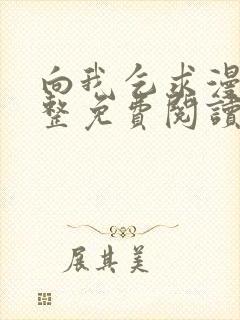 向我乞求漫
整免費閱讀
展其美